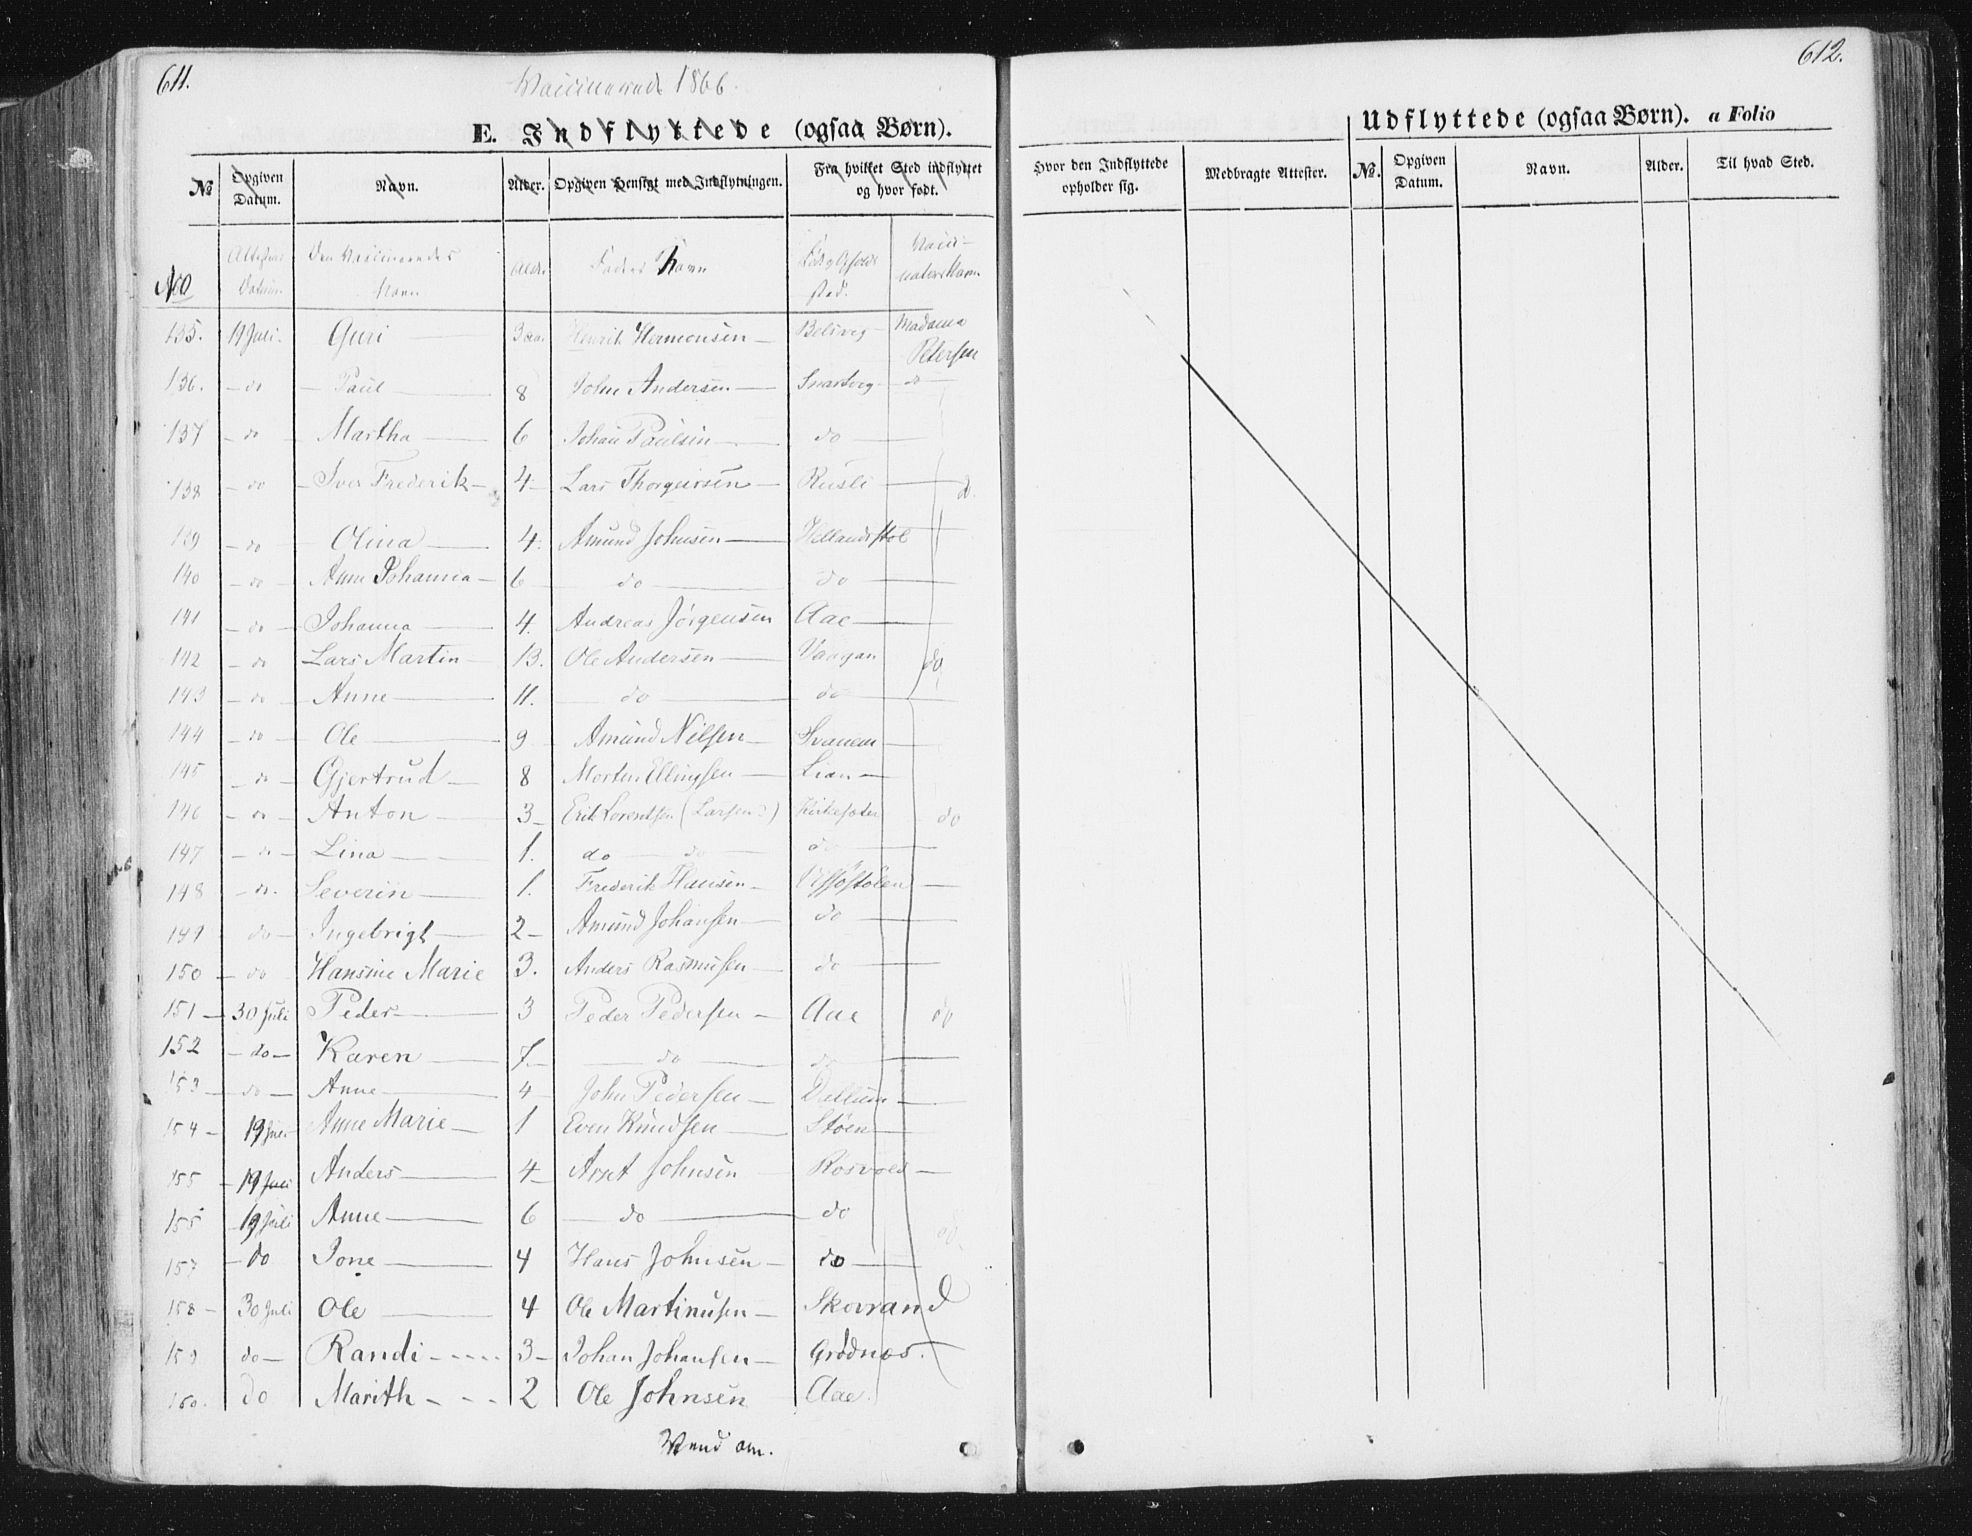 611.
Vaccinerede 1866.
E. Indflyttede (ogsaa Børn).
№ Opgiven Datum. Navn. Alder. Opgiven Hensigt med Indflytningen. Fra hvilket Sted indflyttet og hvor født.
No Attestens Datum Den Vaccineredes Navn Alder Faders Navn Opholdssted. Vaccinateurs Navn
135. 19 Juli. Guri 3 Henrik Hermonsen Belsvig Madame Petersen
136. do Paul 8 John Andersen Snartvig do
137 do Martha 6 Johan Paulsen do
138 do Iver Frederik 4 Lars Thorgersen Rusli d.
139 do Olina 4. Amund Johnsen Hellandsstol
140 do Anne Johanna 6 do do
141 do Johanna 4. Andreas Jörgensen Aae
142 do Lars Martin 13. Ole Andersen Vaagan do
143 do Anne 11. do do
144 do Ole 9 Amund Nilsen Svanem
145 do Gjertrud 8 Morten Ellingsen Lian
146 do Anton 3 Erik Lorentsen (Larsen?) Kirkesæter do
147 do Lina 1. do do do
148 do. Severin 1. Frederik Hansen
149 do Ingebrigt 2 Amund Johansen do
150 do Hansine Marie 3. Anders Rasmusen do
151 30 Juli Peder 3 Peder Pedersen Aae do
152 do Karen 7. do do
153 do Anne 4 John Pedersen Dallum
154 19 Juli Anne Marie 1 Even Knudsen Støen
155 19 Juli Anders 4 Arnt Johnsen Rosvold
155 19 Juli Anne 6 do do
157 do Jone 4 Hans Johnsen do
158 30 Juli Ole 4 Ole Martinusen Skovrand
159 do Randi 3 Johan Johansen Grödnæs.
160. do Marith 2 Ole Johnsen Aae.
Vend om.
612.
Udflyttede (ogsaa Børn). a Folio
Hvor den Indflyttede opholder sig. Medbragte Attester. №. Opgiven Datum. Navn. Alder. Til hvad Sted.